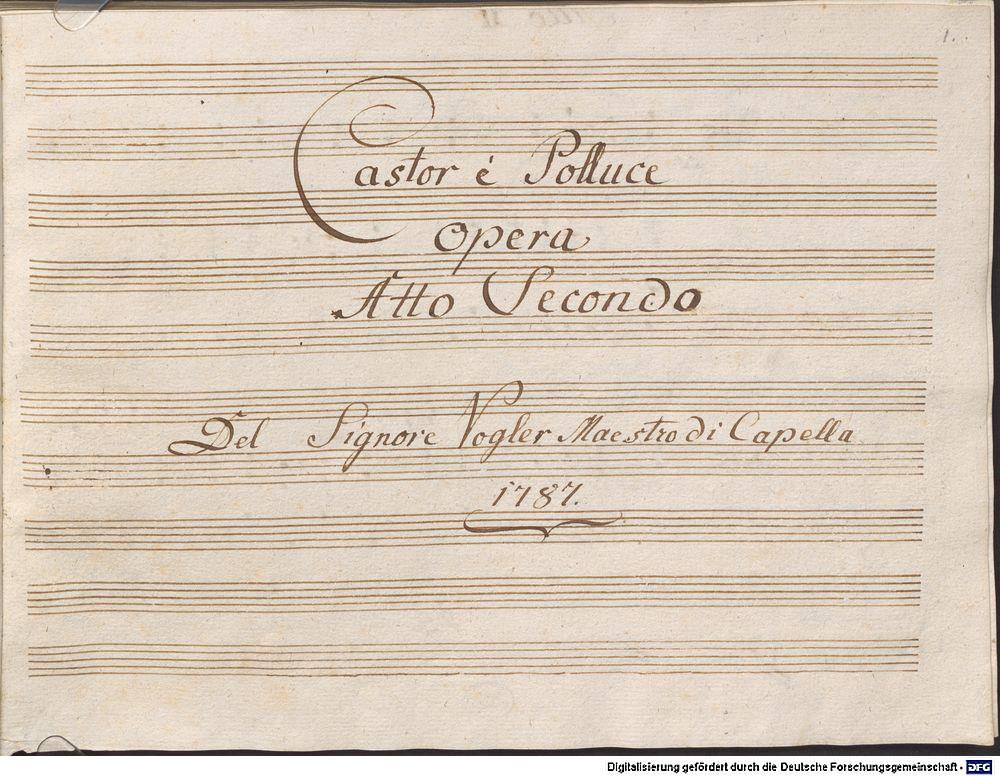 1.
Castor é Polluce
Opera
Atto Secondo
Del Signore Vogler Maestro di Capella
1787.
Digitalisierung gefördert durch die Deutsche Forschungsgemeinschaft - DFG